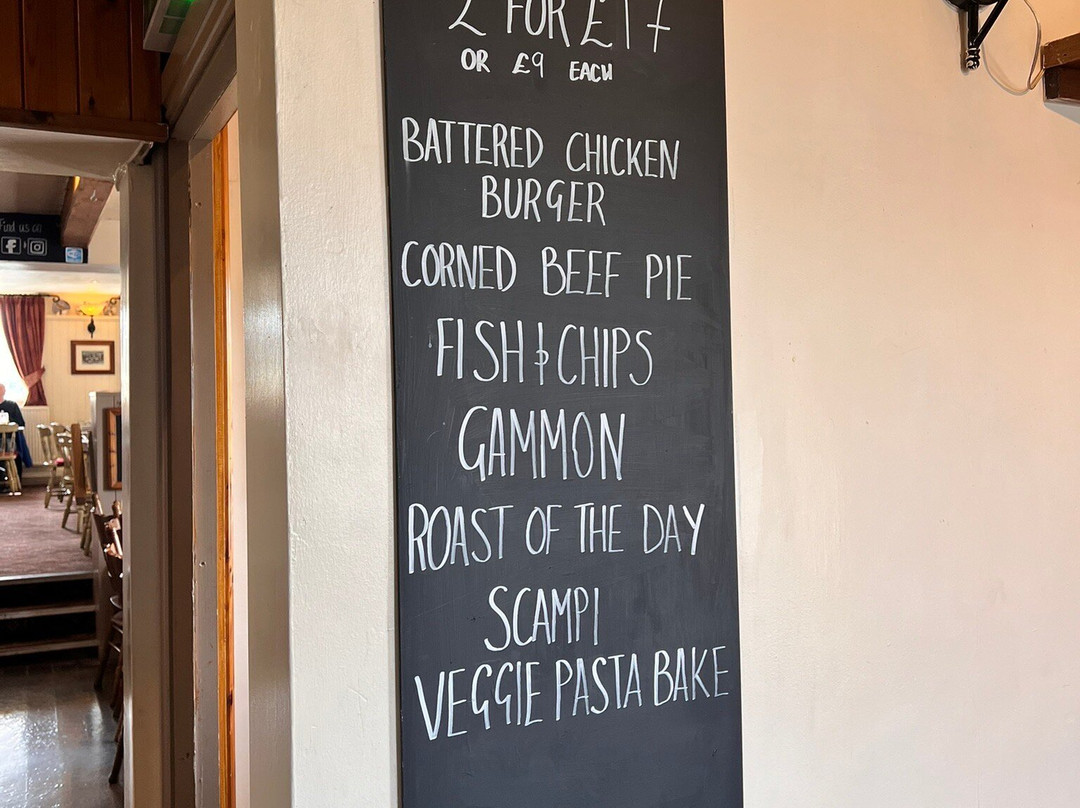 2 FOR £17
OR £9 EACH
BATTERED CHICKEN
BURGER
CORNED BEEF PIE
FISH & CHIPS
GAMMON
ROAST OF THE DAY
SCAMPI
VEGGIE PASTA BAKE
Find us on